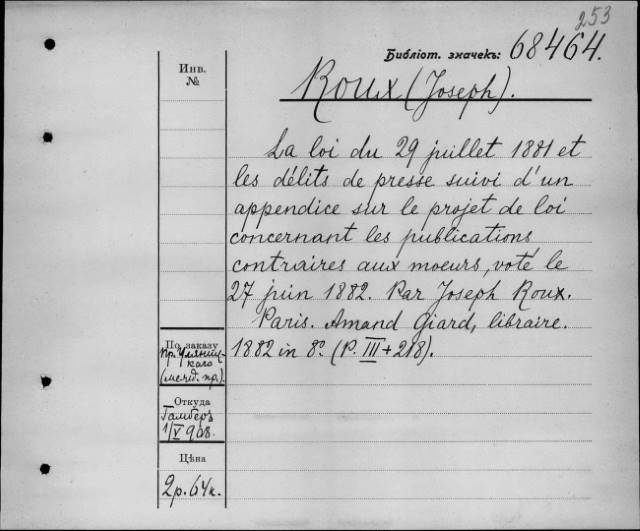 253
Библіот. значекъ: 68464.
Roux (Joseph).
Инв.
№
La loi du 29 juillet 1881 et
les délits de presse suivi d'un
appendice sur le projet de loi
concernant les publications
contraires aux moeurs, voté le
27 juin 1882. Par Joseph Roux.
Paris. Amand Giard, libraire.
1882 in 8º. (P. III + 218).
По заказу
пр. Уляниц-
каго
(межд. пр.)
Откуда
Гамберъ
1/V 908.
Цѣна
2р. 64к.